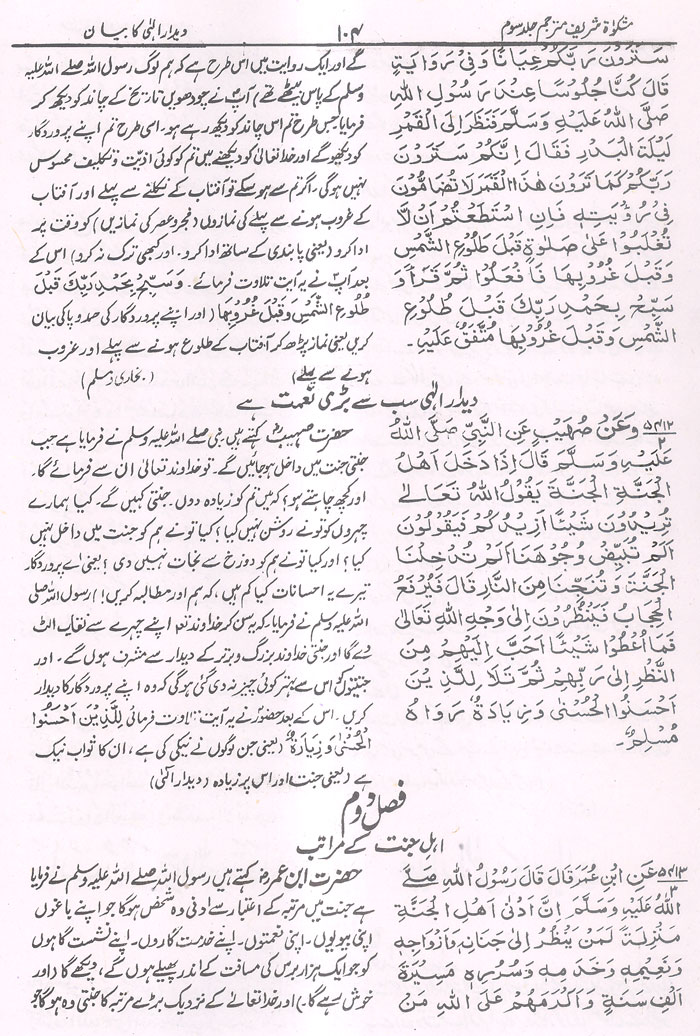 مشکوٰۃ شریف مترجم جلد سوم
۱۰۴
دیدار الٰہی کا بیان
سَتَرَوْنَ رَبَّكُمْ عِيَانًا وَفِي رِوَايَةٍ
قَالَ كُنَّا جُلُوسًا عِنْدَ رَسُولِ اللهِ
صَلَّى اللهُ عَلَيْهِ وَسَلَّمَ فَنَظَرَ إِلَى الْقَمَرِ
لَيْلَةَ الْبَدْرِ فَقَالَ إِنَّكُمْ سَتَرَوْنَ
رَبَّكُمْ كَمَا تَرَوْنَ هٰذَا الْقَمَرَ لَا تُضَامُّونَ
فِي رُؤْيَتِهِ فَإِنِ اسْتَطَعْتُمْ أَنْ لَّا
تُغْلَبُوا عَلَى صَلٰوةٍ قَبْلَ طُلُوعِ الشَّمْسِ
وَقَبْلَ غُرُوبِهَا فَافْعَلُوا ثُمَّ قَرَأَ وَ
سَبِّحْ بِحَمْدِ رَبِّكَ قَبْلَ طُلُوعِ
الشَّمْسِ وَقَبْلَ غُرُوبِهَا مُتَّفَقٌ عَلَيْهِ۔
گے اور ایک روایت میں اس طرح ہے کہ ہم لوگ رسول اللہ صلے اللہ علیہ
وسلم کے پاس بیٹھے تھے آپ نے چودھویں تاریخ کے چاند کو دیکھ کر
فرمایا جس طرح تم اس چاند کو دیکھ رہے ہو۔ اسی طرح تم اپنے پروردگار
کو دیکھو گے اور خدا تعالیٰ کو دیکھنے میں تم کو کوئی اذیت و تکلیف محسوس
نہیں ہوگی۔ اگر تم سے ہوسکے تو آفتاب کے نکلنے سے پہلے اور آفتاب
کے غروب ہونے سے پہلے کی نمازوں (فجر و عصر کی نمازیں) کو وقت پر
ادا کرو (یعنی پابندی کے ساتھ ادا کرو۔ اور کبھی ترک نہ کرو) اس کے
بعد آپ نے یہ آیت تلاوت فرمائے۔ وَسَبِّحْ بِحَمْدِ رَبِّكَ قَبْلَ
طُلُوعِ الشَّمْسِ وَقَبْلَ غُرُوبِهَا (اور اپنے پروردگار کی حمد و پاکی بیان
کریں یعنی نماز پڑھ کر آفتاب کے طلوع ہونے سے پہلے اور غروب
ہونے سے پہلے) (بخاری و مسلم)
دیدار الٰہی سب سے بڑی نعمت ہے
۵۴۱۲
۲
وَعَنْ صُهَيْبٍ عَنِ النَّبِيِّ صَلَّى اللهُ
عَلَيْهِ وَسَلَّمَ قَالَ إِذَا دَخَلَ أَهْلُ
الْجَنَّةِ الْجَنَّةَ يَقُولُ اللهُ تَعَالٰى
تُرِيدُونَ شَيْئًا أَزِيدُكُمْ فَيَقُولُونَ
أَلَمْ تُبَيِّضْ وُجُوهَنَا أَلَمْ تُدْخِلْنَا
الْجَنَّةَ وَتُنَجِّنَا مِنَ النَّارِ قَالَ فَيُرْفَعُ
الْحِجَابُ فَيَنْظُرُونَ إِلٰى وَجْهِ اللهِ تَعَالٰى
فَمَا أُعْطُوا شَيْئًا أَحَبَّ إِلَيْهِمْ مِنَ
النَّظْرِ إِلٰى رَبِّهِمْ ثُمَّ تَلَا لِلَّذِيْنَ
أَحْسَنُوا الْحُسْنٰى وَزِيَادَةٌ رَوَاهُ
مُسْلِمٌ۔
حضرت صہیبؓ کہتے ہیں نبی صلے اللہ علیہ وسلم نے فرمایا ہے جب
جنتی جنت میں داخل ہو جائیں گے۔ تو خداوند تعالیٰ ان سے فرمائے گا۔
اور کچھ چاہتے ہو؟ کہ میں تم کو زیادہ دوں۔ جنتی کہیں گے۔ کیا ہمارے
چہروں کو تو نے روشن نہیں کیا؟ کیا تو نے ہم کو جنت میں داخل نہیں
کیا؟ اور کیا تو نے ہم کو دوزخ سے نجات نہیں دی؟ یعنی اے پروردگار
تیرے یہ احسانات کیا کم ہیں، کہ ہم اور مطالبہ کریں!) رسول اللہ صلی
اللہ علیہ وسلم نے فرمایا۔ یہ سن کر خداوند تعہ اپنے چہرے سے نقاب الٹ
دے گا اور جنتی خداوند بزرگ و برتر کے دیدار سے مشرف ہوں گے۔ اور
جنتیوں کو اس سے بہتر کوئی چیز نہ دی گئی ہوگی کہ وہ اپنے پروردگار کا دیدار
کریں۔ اس کے بعد حضورؐ نے یہ آیت تلاوت فرمائی لِلَّذِيْنَ أَحْسَنُوا
الْحُسْنٰى وَزِيَادَةٌ (یعنی جن لوگوں نے نیکی کی ہے، ان کا ثواب نیک
ہے (یعنی جنت اور اس پر زیادہ (دیدار الٰہی)
فصل دوم
اہل جنت کے مراتب
۵۴۱۳
۳
عَنِ ابْنِ عُمَرَ قَالَ قَالَ رَسُولُ اللهِ صَلَّے
اللهُ عَلَيْهِ وَسَلَّمَ إِنَّ أَدْنٰى أَهْلِ الْجَنَّةِ
مَنْزِلَةً لَمَنْ يَنْظُرُ إِلٰى جِنَانِهِ وَأَزْوَاجِهِ
وَنَعِيمِهِ وَخَدَمِهِ وَسُرُرِهِ مَسِيْرَةَ
أَلْفِ سَنَةٍ وَأَكْرَمُهُمْ عَلَى اللهِ مَنْ
حضرت ابن عمرؓ کہتے ہیں رسول اللہ صلے اللہ علیہ وسلم نے فرمایا
ہے جنت میں مرتبہ کے اعتبار سے ادنیٰ وہ شخص ہوگا جو اپنے باغوں
اپنی بیویوں۔ اپنی نعمتوں۔ اپنے خدمت گاروں۔ اپنے نشست گاہوں
کو جو ایک ہزار برس کی مسافت کے اندر پھیلے ہوں گے، دیکھے گا (اور
خوش ہوئے گا۔) اور خدا تعالےٰ کے نزدیک بڑے مرتبہ کا جنتی وہ ہوگا جو